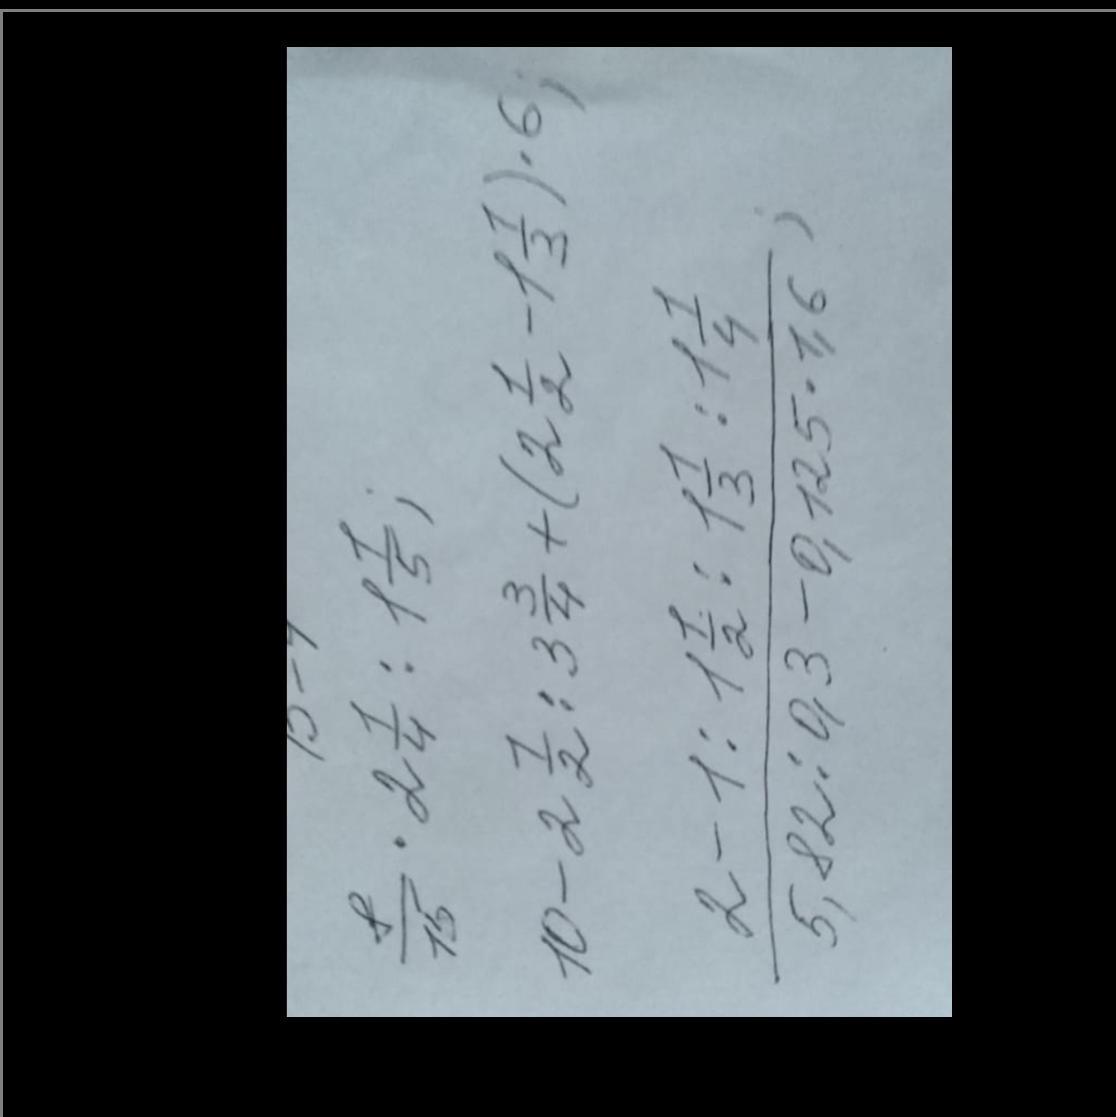 15 - 1
8/15 · 2 1/4 : 1 1/5 ;
10 - 2 1/2 : 3 3/4 + (2 1/2 - 1 1/3) · 6 ;
2 - 1 : 1 1/2 : 1 1/3 : 1 1/4
5,82 : 0,3 - 0,125 · 1,6 ;